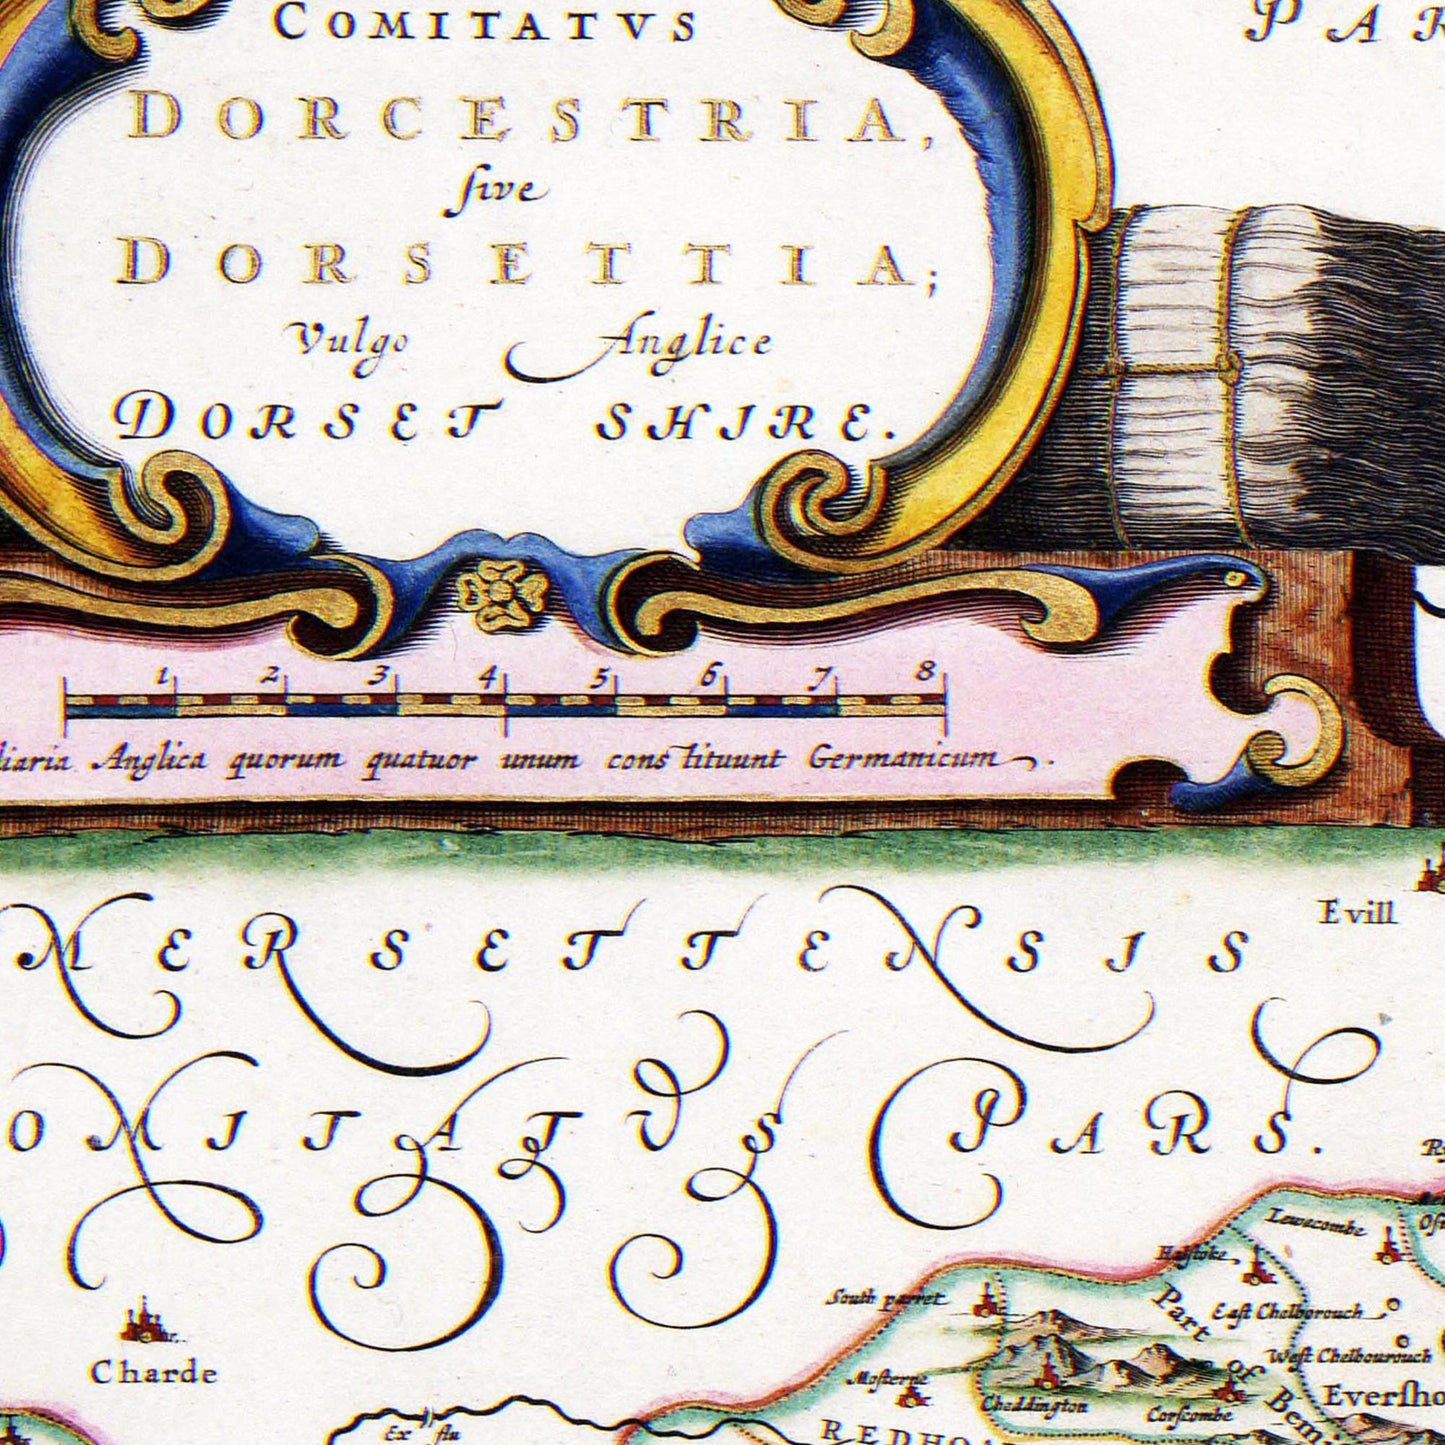 COMITATVS
PAR
DORCESTRIA,
ſive
DORSETTIA;
Vulgo Anglice
DORSET SHIRE.
1 2 3 4 5 6 7 8
liaria Anglica quorum quatuor unum constituunt Germanicum.
Evill
MERSETTENSIS
OMITATVS PARS.
Lewecombe
Halstoke
South parret
East Chelborouch
Part of Bemi
West Chelbourouch
Charde
Mosterne
Cheddington
Corscombe
Everſho
Ex flu
REDHO